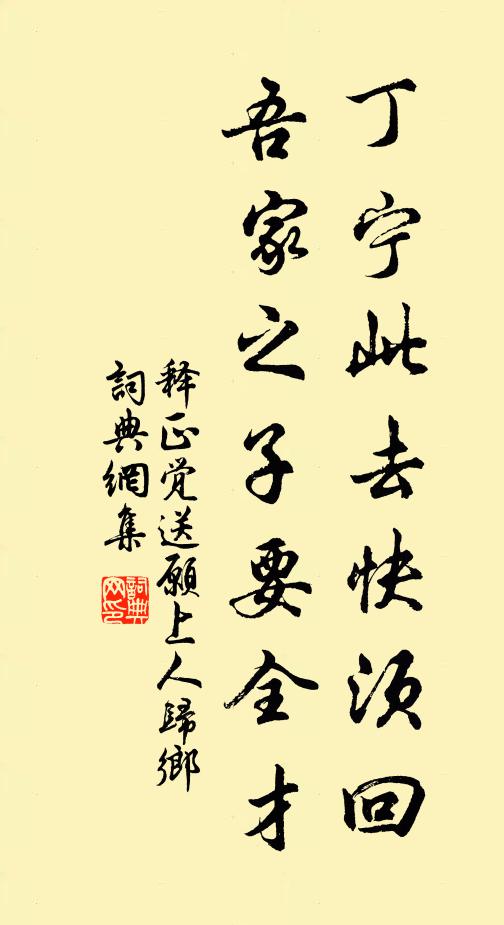 丁宁此去快须回
吾家之子要全才
释正觉送願上人歸鄉
詞典網集
詞典网印